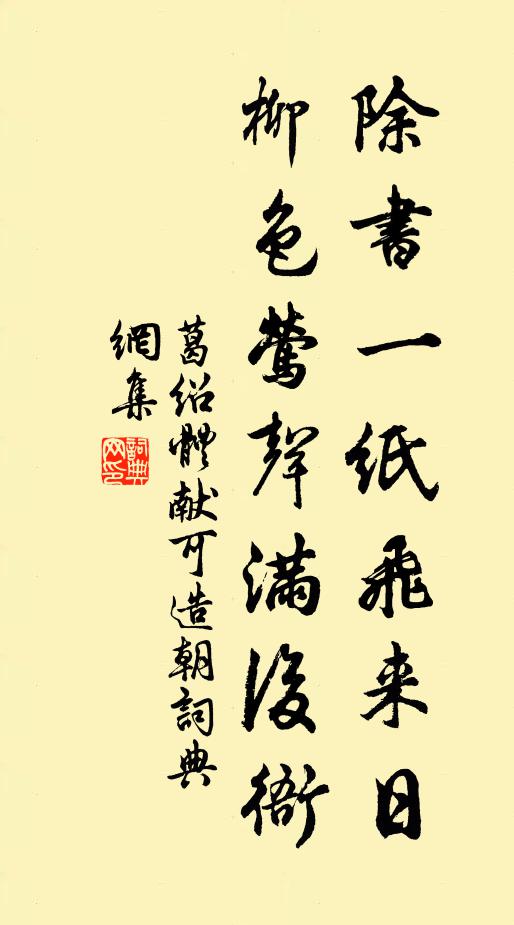 除書一紙飛来日
柳色鶯聲滿後衙
葛紹體献可造朝詞典
網集
詞典
网印